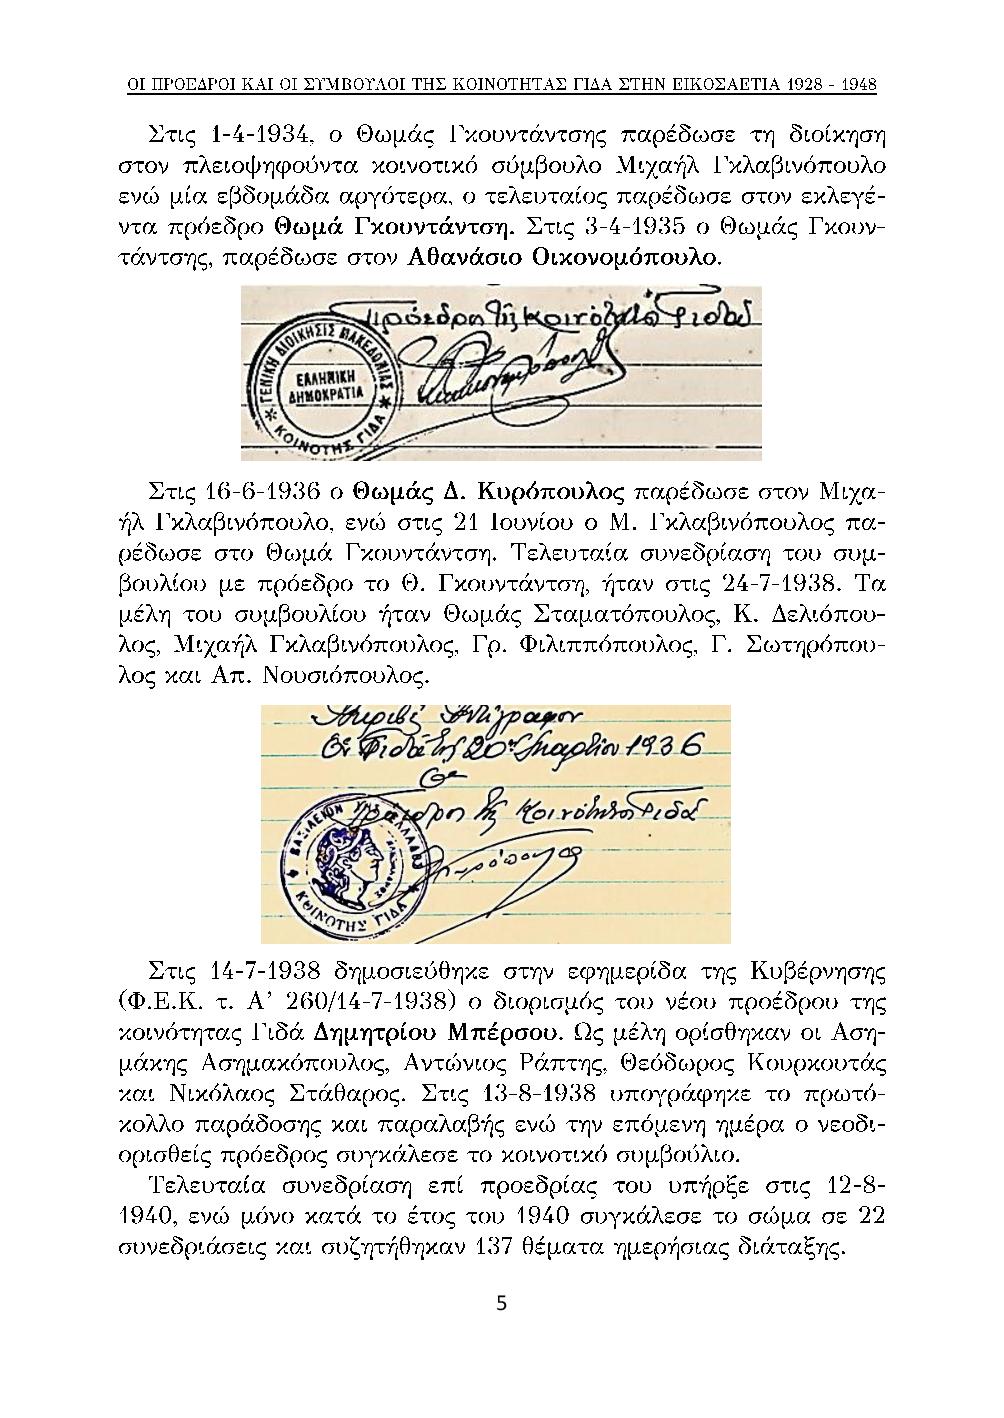 ΟΙ ΠΡΟΕΔΡΟΙ ΚΑΙ ΟΙ ΣΥΜΒΟΥΛΟΙ ΤΗΣ ΚΟΙΝΟΤΗΤΑΣ ΓΙΔΑ ΣΤΗΝ ΕΙΚΟΣΑΕΤΙΑ 1928 - 1948
Στις 1-4-1934, ο Θωμάς Γκουντάντσης παρέδωσε τη διοίκηση
στον πλειοψηφούντα κοινοτικό σύμβουλο Μιχαήλ Γκλαβινόπουλο
ενώ μία εβδομάδα αργότερα, ο τελευταίος παρέδωσε στον εκλεγέ-
ντα πρόεδρο Θωμά Γκουντάντση. Στις 3-4-1935 ο Θωμάς Γκουν-
τάντσης, παρέδωσε στον Αθανάσιο Οικονομόπουλο.
πρόεδρος τῆς Κοινότητος Γιδᾶ
ΓΕΝΙΚΗ ΔΙΟΙΚΗΣΙΣ ΜΑΚΕΔΟΝΙΑΣ
ΕΛΛΗΝΙΚΗ
ΔΗΜΟΚΡΑΤΙΑ
ΚΟΙΝΟΤΗΣ ΓΙΔΑ
Στις 16-6-1936 ο Θωμάς Δ. Κυρόπουλος παρέδωσε στον Μιχα-
ήλ Γκλαβινόπουλο, ενώ στις 21 Ιουνίου ο Μ. Γκλαβινόπουλος πα-
ρέδωσε στο Θωμά Γκουντάντση. Τελευταία συνεδρίαση του συμ-
βουλίου με πρόεδρο το Θ. Γκουντάντση, ήταν στις 24-7-1938. Τα
μέλη του συμβουλίου ήταν Θωμάς Σταματόπουλος, Κ. Δελιόπου-
λος, Μιχαήλ Γκλαβινόπουλος, Γρ. Φιλιππόπουλος, Γ. Σωτηρόπου-
λος και Απ. Νουσιόπουλος.
Ἀκριβές Ἀντίγραφον
Ἐν Γιδᾷ τῇ 20ῃ Μαρτίου 1936
Ὁ
Πρόεδρος τῆς Κοινότητος Γιδᾶ
ΒΑΣΙΛΕΙΟΝ ΤΗΣ ΕΛΛΑΔΟΣ
ΚΟΙΝΟΤΗΣ ΓΙΔΑ
Στις 14-7-1938 δημοσιεύθηκε στην εφημερίδα της Κυβέρνησης
(Φ.Ε.Κ. τ. Α’ 260/14-7-1938) ο διορισμός του νέου προέδρου της
κοινότητας Γιδά Δημητρίου Μπέρσου. Ως μέλη ορίσθηκαν οι Αση-
μάκης Ασημακόπουλος, Αντώνιος Ράπτης, Θεόδωρος Κουρκουτάς
και Νικόλαος Στάθαρος. Στις 13-8-1938 υπογράφηκε το πρωτό-
κολλο παράδοσης και παραλαβής ενώ την επόμενη ημέρα ο νεοδι-
ορισθείς πρόεδρος συγκάλεσε το κοινοτικό συμβούλιο.
Τελευταία συνεδρίαση επί προεδρίας του υπήρξε στις 12-8-
1940, ενώ μόνο κατά το έτος του 1940 συγκάλεσε το σώμα σε 22
συνεδριάσεις και συζητήθηκαν 137 θέματα ημερήσιας διάταξης.
5